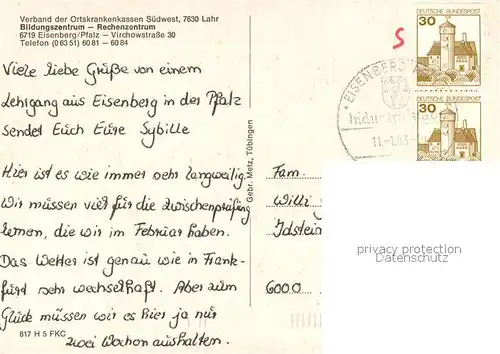 Verband der Ortskrankenkassen Südwest, 7630 Lahr
Bildungszentrum — Rechenzentrum
6719 Eisenberg/Pfalz — Virchowstraße 30
Telefon (06351) 6081 — 6084
Viele liebe Grüße von einem
Lehrgang aus Eisenberg in der Pfalz
sendet Euch Eure Sybille
Hier ist es wie immer sehr langweilig.
Wir müssen viel für die Zwischenprüfung
lernen, die wir im Februar haben.
Das Wetter ist genau wie in Frank-
furt sehr wechselhaft. Aber zum
Glück müssen wir es hier ja nur
zwei Wochen aushalten.
817 H 5 FKC
Gebr. Metz, Tübingen
S
EISENBERG
Industrie
11.-1.83
30
DEUTSCHE BUNDESPOST
30
DEUTSCHE BUNDESPOST
Fam.
Willi
Idstein
6000
privacy protection
Datenschutz